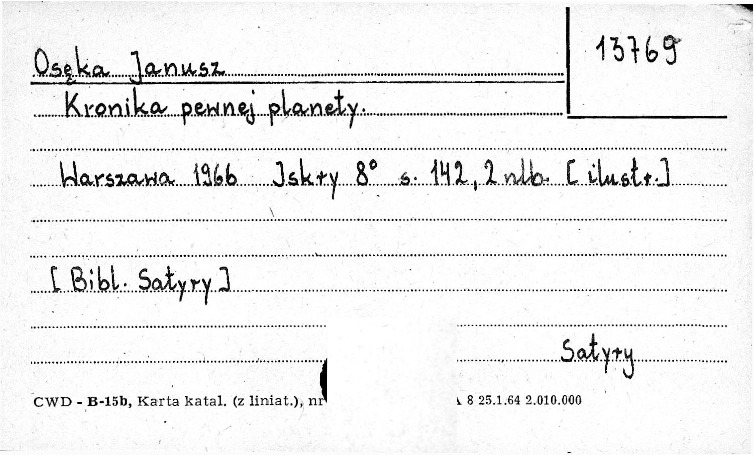 13769
Osęka Janusz
Kronika pewnej planety.
Warszawa 1966 Iskry 8° s. 142, 2 nlb. [ilustr.]
[Bibl. Satyry]
Satyry
CWD - B-15b, Karta katal. (z liniat.), nr 8 25.1.64 2.010.000